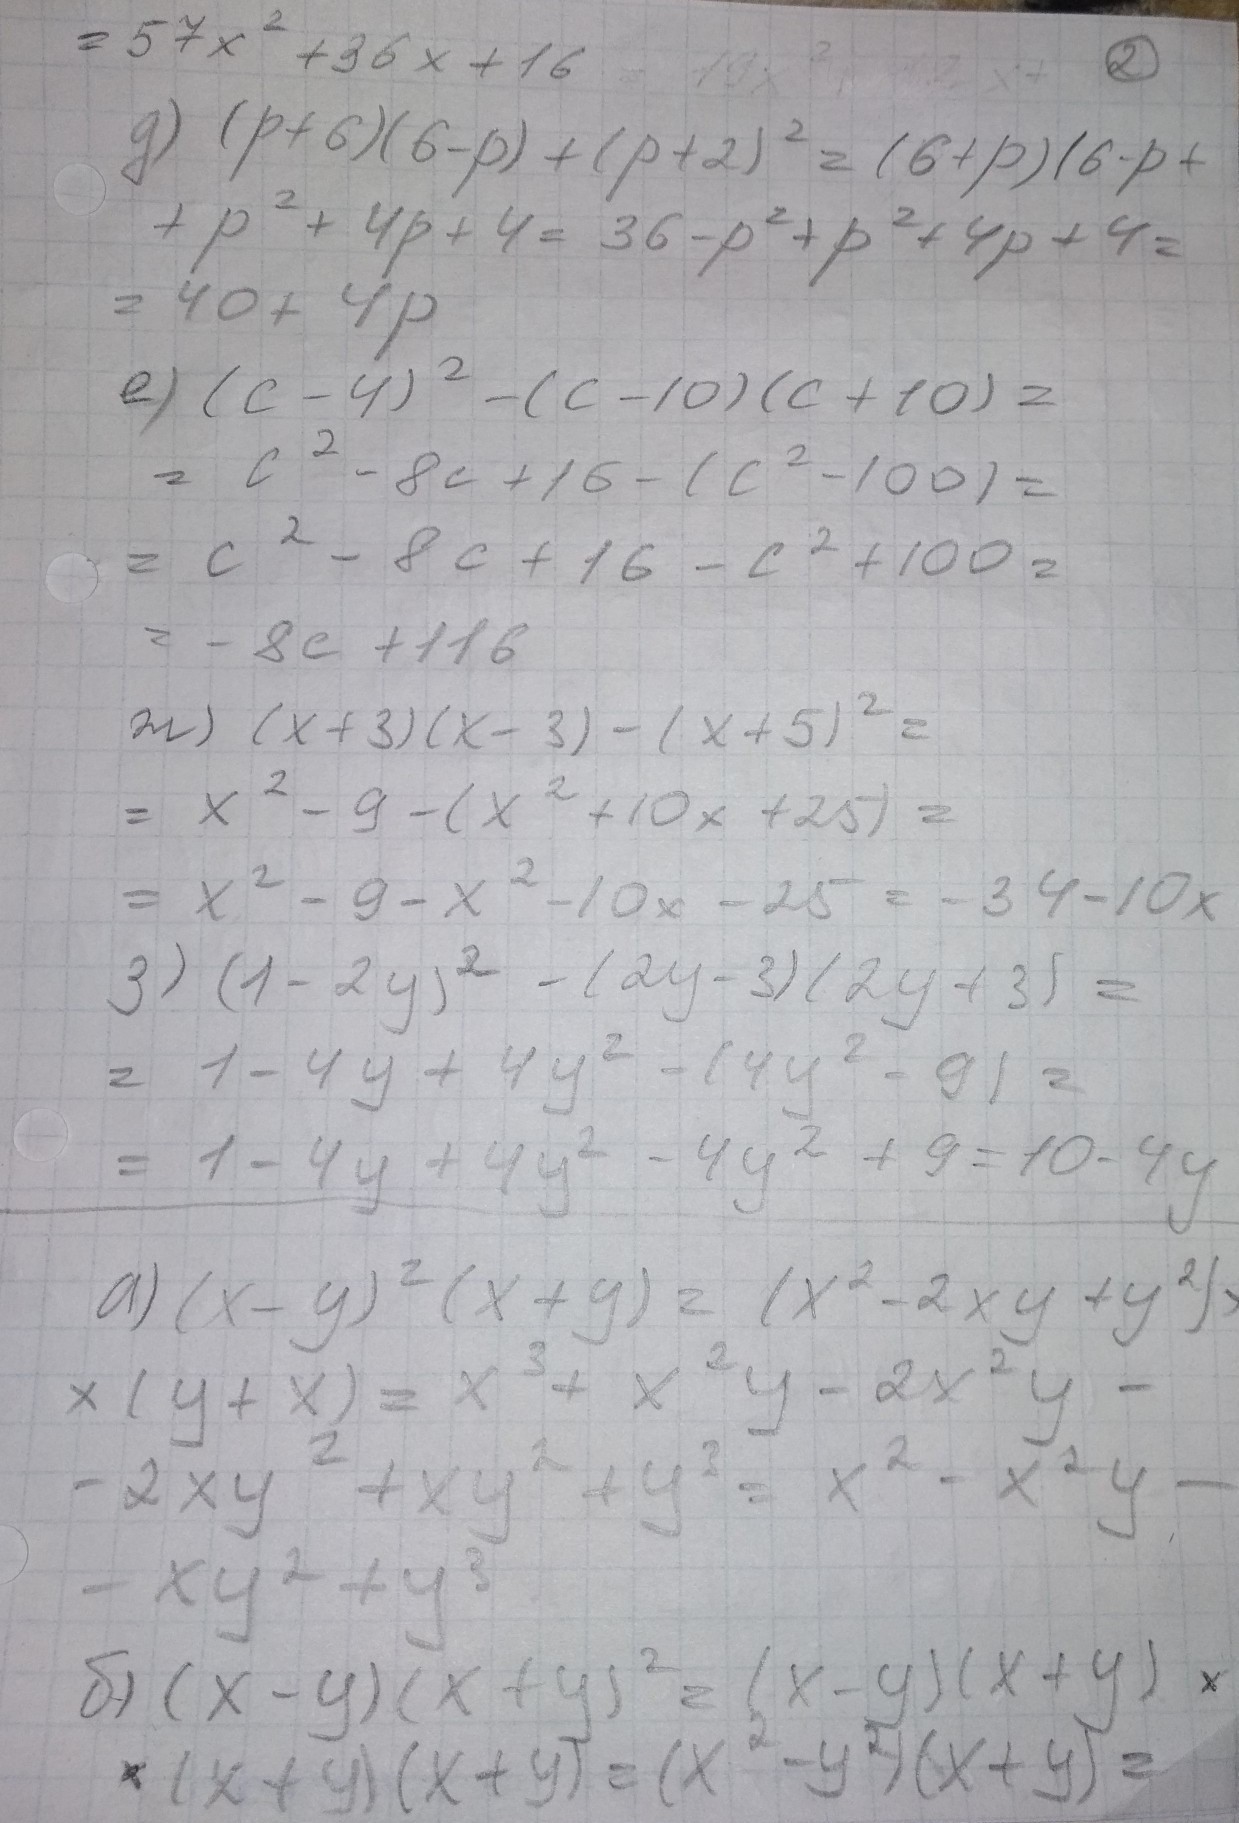 = 57x² + 36x + 16 = 19x² x +
②
д) (p+6)(6-p) + (p+2)² = (6+p)(6-p +
+ p² + 4p + 4 = 36 - p² + p² + 4p + 4 =
= 40 + 4p
е) (c - 4)² - (c - 10)(c + 10) =
= c² - 8c + 16 - (c² - 100) =
= c² - 8c + 16 - c² + 100 =
= - 8c + 116
ж) (x + 3)(x - 3) - (x + 5)² =
= x² - 9 - (x² + 10x + 25) =
= x² - 9 - x² - 10x - 25 = - 34 - 10x
з) (1 - 2y)² - (2y - 3)(2y + 3) =
= 1 - 4y + 4y² - (4y² - 9) =
= 1 - 4y + 4y² - 4y² + 9 = 10 - 4y
а) (x - y)² (x + y) = (x² - 2xy + y²) ×
× (y + x) = x³ + x²y - 2x²y -
- 2xy² + xy² + y³ = x² - x²y -
- xy² + y³
б) (x - y)(x + y)² = (x - y)(x + y) ×
× (x + y)(x + y) = (x² - y²)(x + y) =